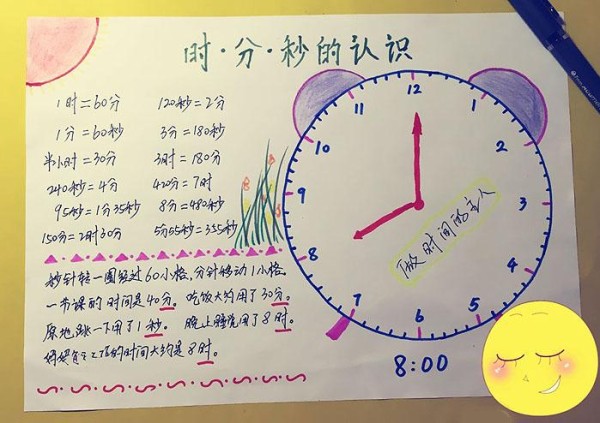 时·分·秒的认识
1时=60分 120秒=2分
1分=60秒 3分=180秒
半小时=30分 3时=180分
240秒=4分 420分=7时
95秒=1分35秒 8分=480秒
150分=2时30分 5分55秒=355秒
秒针转一圈经过60小格,分针移动1小格。
一节课的时间是40分。吃饭大约用了30分。
原地跳一下用了1秒。晚上睡觉用了8时。
妈妈每天工作的时间大约是8时。
12
1
2
3
4
5
6
7
8
9
10
11
做时间的主人
8:00